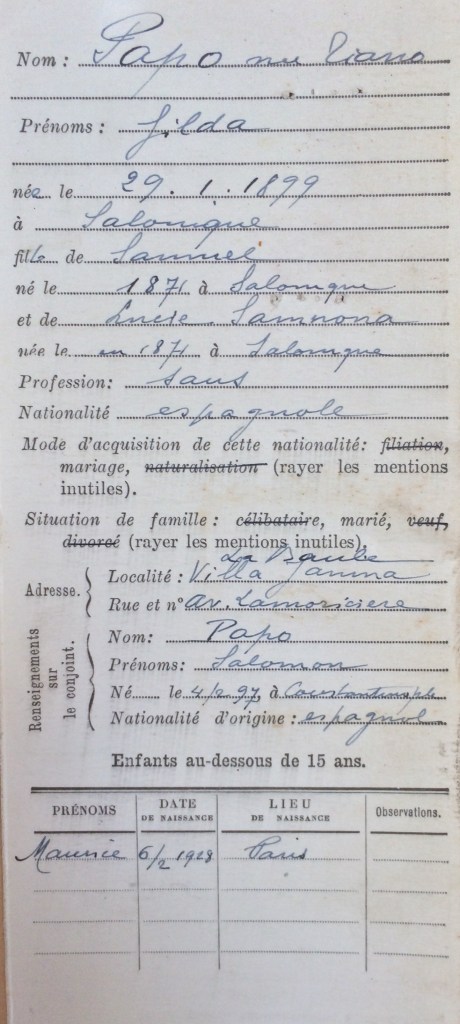 Nom : Papo née Ciana
Prénoms : Gilda
née le 29.1.1899
à Salonique
fille de Samuel
né le 1871 à Salonique
et de Lucie
née le en 1871 à Salonique
Profession: sans
Nationalité espagnole
Mode d'acquisition de cette nationalité: filiation,
mariage, naturalisation (rayer les mentions
inutiles).
Situation de famille : célibataire, marié, veuf,
divorcé (rayer les mentions inutiles),
La Baule
Adresse. Localité : Villa
Rue et n° av. Lamoricière
Renseignements sur le conjoint.
Nom: Papo
Prénoms: Salomon
Né le 4/2 97, à Constantinople
Nationalité d'origine : espagnol
Enfants au-dessous de 15 ans.
PRÉNOMS DATE DE NAISSANCE LIEU DE NAISSANCE Observations.
Maurice 6/2 1928 Paris